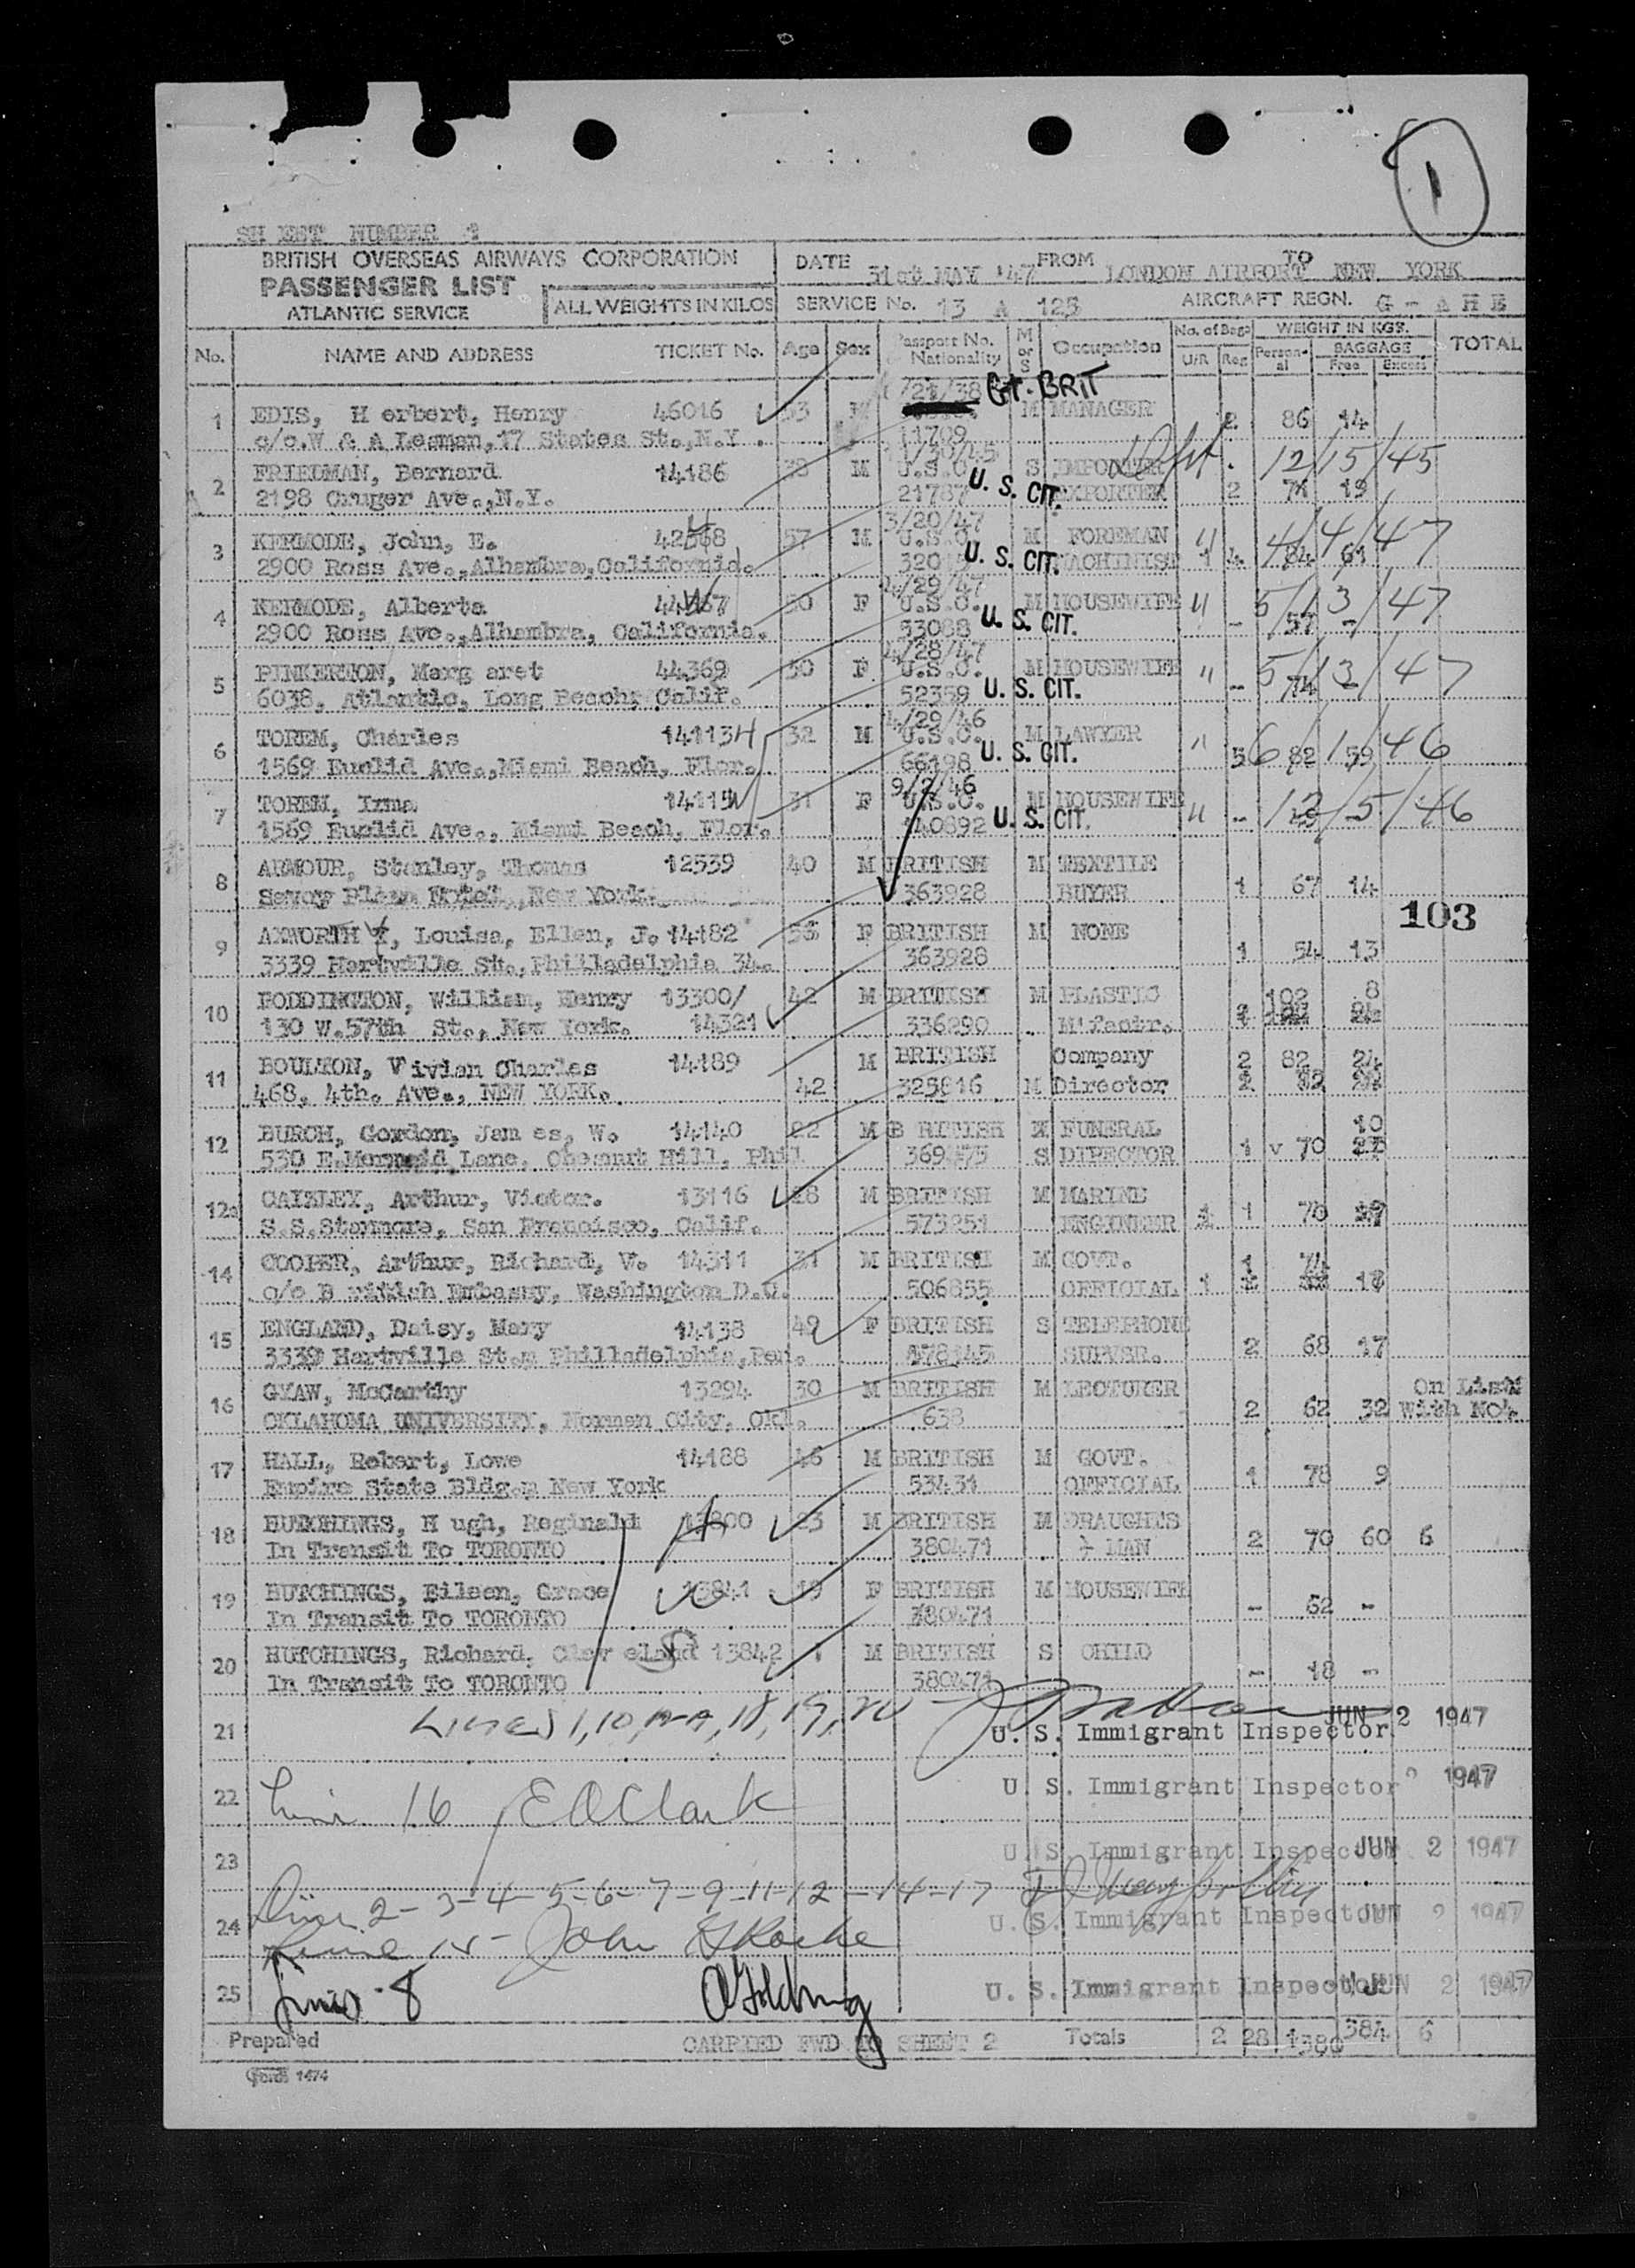 1
SHEET NUMBER 1
BRITISH OVERSEAS AIRWAYS CORPORATION
PASSENGER LIST
ATLANTIC SERVICE
ALL WEIGHTS IN KILOS
DATE 31st MAY '47 FROM LONDON AIRPORT TO NEW YORK
SERVICE No. 13 A 123 AIRCRAFT REGN. G - A H E
No. NAME AND ADDRESS TICKET No. Age Sex Passport No. Nationality M or S Occupation No. of Bags U/R Reg WEIGHT IN KGS. Person-al BAGGAGE Free Excess TOTAL
/21/38 Gt. BRIT
1 EDIS, H erbert, Henry 46016 53 M M MANAGER 2 86 14
c/o.W & A Lesman, 17 States St., N.Y. 11709
/30/45
2 FRIEDMAN, Bernard 14186 38 M U.S.C. S IMPORTER 12/15/45
2198 Cruger Ave., N.Y. 21787 U. S. CIT. EXPORTER 2 19
3/20/47
3 KERMODE, John, E. 57 M U.S.C. M FOREMAN " 4/4/47
2900 Ross Ave., Alhambra, California. U. S. CIT. MACHINIST 1 4 84 61
4/29/47
4 KERMODE, Alberta 50 F U.S.C. M HOUSEWIFE " 5/13/47
2900 Ross Ave., Alhambra, California. 53088 U. S. CIT. - 57 -
4/28/47
5 PINKERTON, Marg aret 44369 50 F U.S.C. M HOUSEWIFE " 5/13/47
6038, Atlantic, Long Beach, Calif. 52359 U. S. CIT. - 74 -
4/29/46
6 TOREM, Charles 14113 32 M U.S.C. M LAWYER " 6/1/46
1569 Euclid Ave., Miami Beach, Flor. 66198 U. S. CIT. 5 82 59
9/2/46
7 TOREM, Irma 14115 31 F U.S.C. M HOUSEWIFE " 12/5/46
1569 Euclid Ave., Miami Beach, Flor. 140892 U. S. CIT. -
8 ARMOUR, Stanley, Thomas 12539 40 M BRITISH M TEXTILE
Savoy Plaza Hotel, New York. 363928 BUYER 1 67 14
103
9 AXWORTHY, Louisa, Ellen, J. 14182 F BRITISH M NONE
3339 Hartville St., Philladelphia 34. 363928 1 54 13
10 BODDINGTON, William, Henry 13300/ 42 M BRITISH M PLASTIC 102 8
130 W.57th St., New York. 14321 336290 M'factr.
11 BOULTON, Vivian Charles 14189 M BRITISH Company 2 82 24
468, 4th. Ave., NEW YORK. 42 325816 M Director
12 BURCH, Gordon, Jam es, W. 14140 22 M B RITISH FUNERAL 10
530 E.Mermaid Lane, Chesnut Hill, Phil S DIRECTOR 1 v 70
12a CAIZLEY, Arthur, Victor. 13116 28 M BRITISH M MARINE
S.S.Stanmore, San Francisco, Calif. 573251 ENGINEER 1 70
14 COOPER, Arthur, Richard, V. 14311 31 M BRITISH M GOVT. 1 74
c/o B ritish Embassy, Washington D.C. 506855 OFFICIAL 1
15 ENGLAND, Daisy, Mary 14138 49 F BRITISH S TELEPHONE
3339 Hartville St., Philladelphia, Pen. 478145 SUPVSR. 2 68 17
16 GYAW, McCarthy 13294 30 M BRITISH M LECTURER On List
OKLAHOMA UNIVERSITY, Norman City, Okl. 638 2 62 32 With No4.
17 HALL, Robert, Lowe 14188 46 M BRITISH M GOVT.
Empire State Bldg., New York 53431 OFFICIAL 1 78 9
18 HUTCHINGS, H ugh, Reginald 13800 23 M BRITISH M DRAUGHTS
In Transit To TORONTO 380471 MAN 2 70 60 6
19 HUTCHINGS, Eileen, Grace 13841 19 F BRITISH M HOUSEWIFE
In Transit To TORONTO 380471 - 62 -
20 HUTCHINGS, Richard, Clev eland 13842 1 M BRITISH S CHILD
In Transit To TORONTO 380471 - 18 -
21 Lines 1, 10, 18, 19, 20 U. S. Immigrant Inspector JUN 2 1947
22 Line 16 E A Clark U. S. Immigrant Inspector 2 1947
23 U. S. Immigrant Inspector JUN 2 1947
2-3-4-5-6-7-9-11-12-14-17
24 U. S. Immigrant Inspector JUN 2 1947
Line 15 - John
25 Line 8 U. S. Immigrant Inspector JUN 2 1947
Prepared CARRIED FWD TO SHEET 2 Totals 2 28 1380 384 6
Form 1474